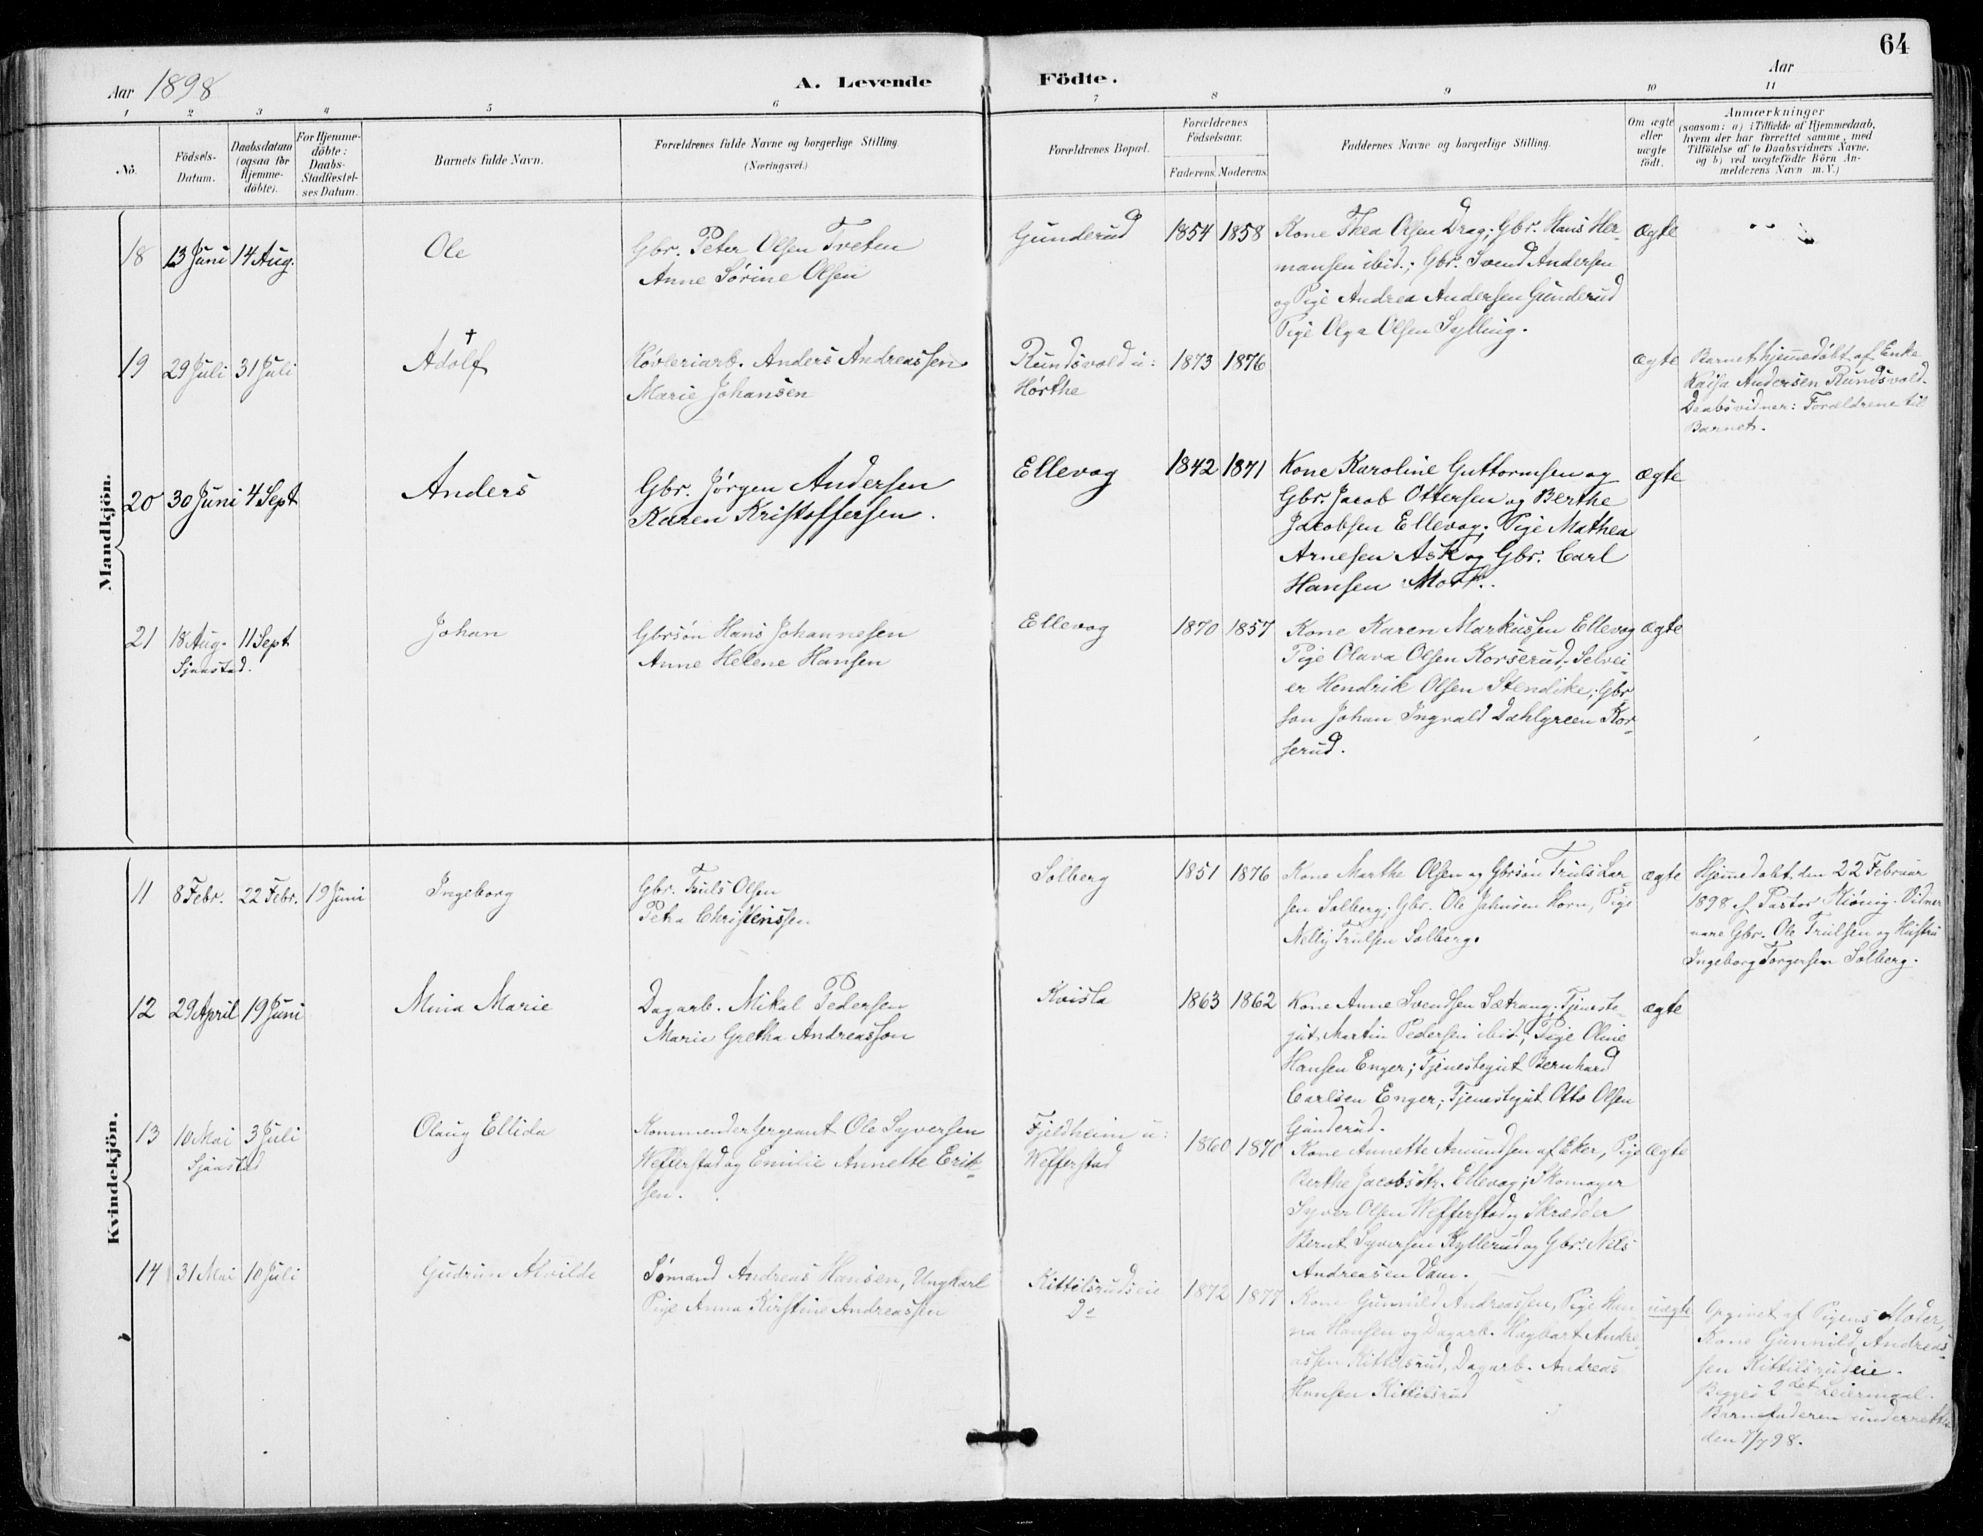 64
Aar 1898
A. Levende Födte.
Aar
1 2 3 4 5 6 7 8 9 10 11
No.
Födsels-
Datum.
Daabsdatum
(ogsaa for
Hjemme-
döbte).
For Hjemme-
döbte:
Daabs-
Stadfæstel-
ses Datum.
Barnets fulde Navn.
Forældrenes fulde Navne og borgerlige Stilling
(Næringsvei.)
Forældrenes Bopæl.
Forældrenes
Födselsaar.
Faderens. Moderens.
Faddernes Navne og borgerlige Stilling.
Om ægte
eller
uægte
födt.
Anmærkninger
(saasom: a) i Tilfælde af Hjemmedaab,
hvem der har forrettet samme, med
Tilföielse af to Daabsvidners Navne,
og b) ved uægtefödte Börn An-
melderens Navn m. V.)
Mandkjön.
18 13 Juni 14 Aug.
Ole
Gbr. Peter Olsen Tveten
Anne Sörine Olsen
Gunderud
1854 1858
Kone Thea Olsen Drag; Gbr. Hans Her-
mansen ibid.; Gbr. Svend Andersen
og Pige Andrea Andersen Gunderud
Pige Olga Olsen Sylling.
ægte
19 29 Juli 31 Juli
Adolf †
Høvleriarb. Anders Andreassen
Marie Johansen
Rundsvold u:
Hørthe
1873 1876
ægte
Barnet hjemmedöbt af Enke
Kaisa Andersen Rundsvold.
Daabsvidner: Forældrene til
Barnet.
20 30 Juni 4 Sept
Anders
Gbr. Jørgen Andersen
Karen Kristoffersen.
Ellevog
1842 1871
Kone Karoline Guttormsen og
Gbr. Jacob Ottersen og Berthe
Jacobsen Ellevog; Pige Mathea
Arnesen Ask og Gbr. Carl
Hansen Mork.
ægte
21 18 Aug. 11 Sept
Sjaastad.
Johan
Gbrsön Hans Johannesen
Anne Helene Hansen
Ellevog
1870 1857
Kone Karen Markussen Ellevog
Pige Olava Olsen Korserud, Selvei-
er Hendrik Olsen Stendike; Gbr
sön Johan Ingvald Dahlgreen Kor-
serud.
ægte
Kvindekjön.
11 8 Febr. 22 Febr. 19 Juni
Ingeborg
Gbr. Truls Olsen
Petra Christenssen.
Solberg
1851 1876
Kone Marthe Olsen og Gbrsön Truls Lar-
sen Solberg; Gbr. Ole Johnsen Horn, Pige
Nelly Trulsen Solberg.
ægte
Hjemmedøbt den 22 Februar
1898 af Pastor Hiönig. Vidner
vare Gbr. Ole Trulsen og Hustru
Ingeborg Torgersen Solberg.
12 29 April 19 Juni
Mina Marie
Dagarb. Mikal Pedersen
Marie Gretha Andreasson
Kvisla
1863 1862
Kone Anne Svendsen Sætrang; Tjeneste-
gut Martin Pedersen ibid.; Pige Oline
Hansen Enger; Tjenestegut Bernhard
Carlsen Enger; Tjenestegut Otto Olsen
Gunderud.
ægte
13 10 Mai 3 Juli
Sjaastad
Olaug Ellida
Kommendersergeant Ole Syversen
Wefferstad og Emilie Annette Erik-
sen.
Fjeldheim u:
Wefferstad
1860 1870
Kone Annette Amundsen af Eker, Pige
Berthe Jacobsdtr. Ellevog; Skomager
Syver Olsen Wefferstad og Skrædder
Bernt Syversen Kyllerud og Gbr. Nels
Andreasen Dam.
ægte
14 31 Mai 10 Juli
Gudrun Alvilda
Sømand Andreas Hansen, Ungkarl
Pige Anna Kirstine Andreassen
Kittilsrudseie
Do
1872 1877
Kone Gunnild Andreassen, Pige Han-
na Hansen og Dagarb. Hagbart Andre-
assen Kittilsrud, Dagarb. Andreas
Hansen Kittilsrud
uægte
Opgivet af Pigens Moder,
Kone Gunnild Andreas-
sen Kittilsrudeie.
Begges 2det Leiermaal.
Barnefaderen underrettet
den 7/7 98.